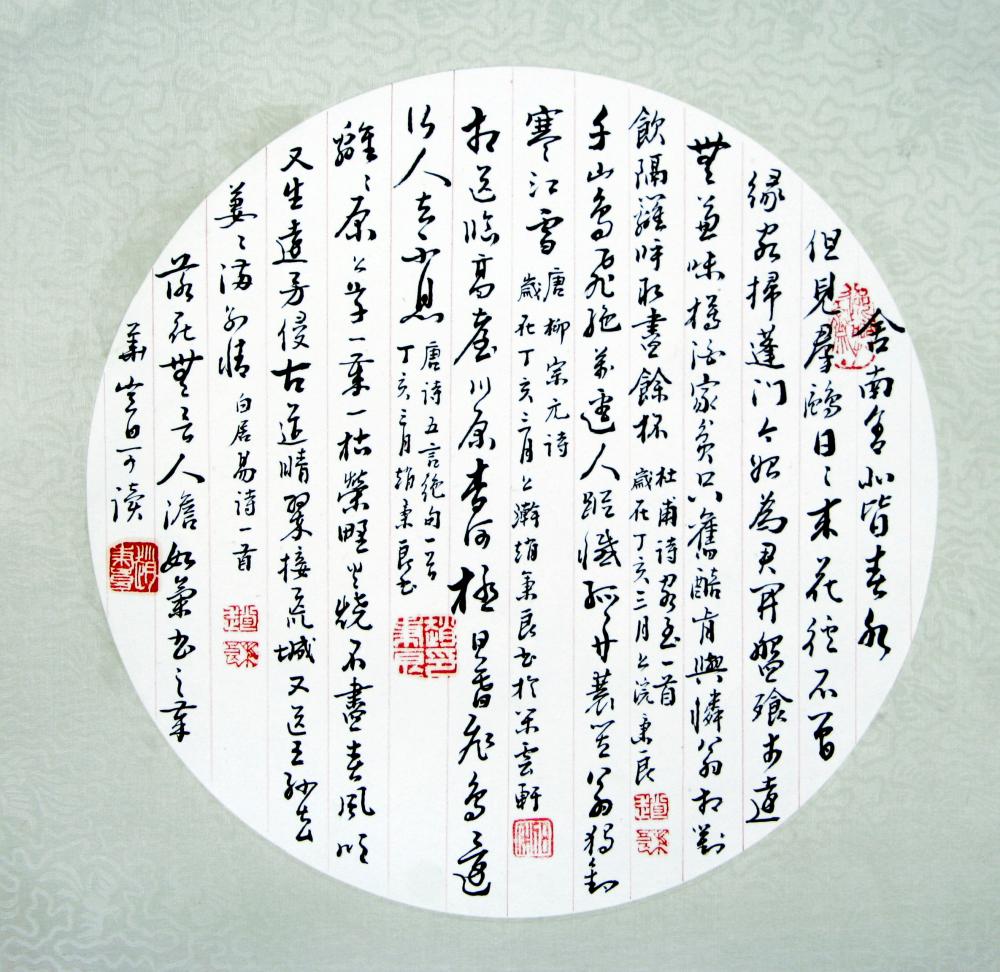 舍南舍北皆春水
但見群鷗日々來花徑不曾
緣客掃蓬門今始為君開盤飧市遠
無兼味樽酒家貧只舊醅肯與憐翁相對
飲隔籬呼取盡餘杯
杜甫詩客至一首
歲在丁亥三月上浣秉良
千山鳥飛絶萬逕人蹤滅孤舟蓑笠翁獨釣
寒江雪
唐柳宗元詩
歲在丁亥三月上澣趙秉良書於雲軒
相送臨高臺川原杳何極日暮飛鳥還
行人去不息
唐詩五言絶句一首
丁亥三月趙秉良書
離々原上草一歲一枯榮野火燒不盡春風吹
又生遠芳侵古道晴翠接荒城又送王孫去
萋々滿別情
白居易詩一首
落花無言人澹如菊書之歲
華其曰可讀